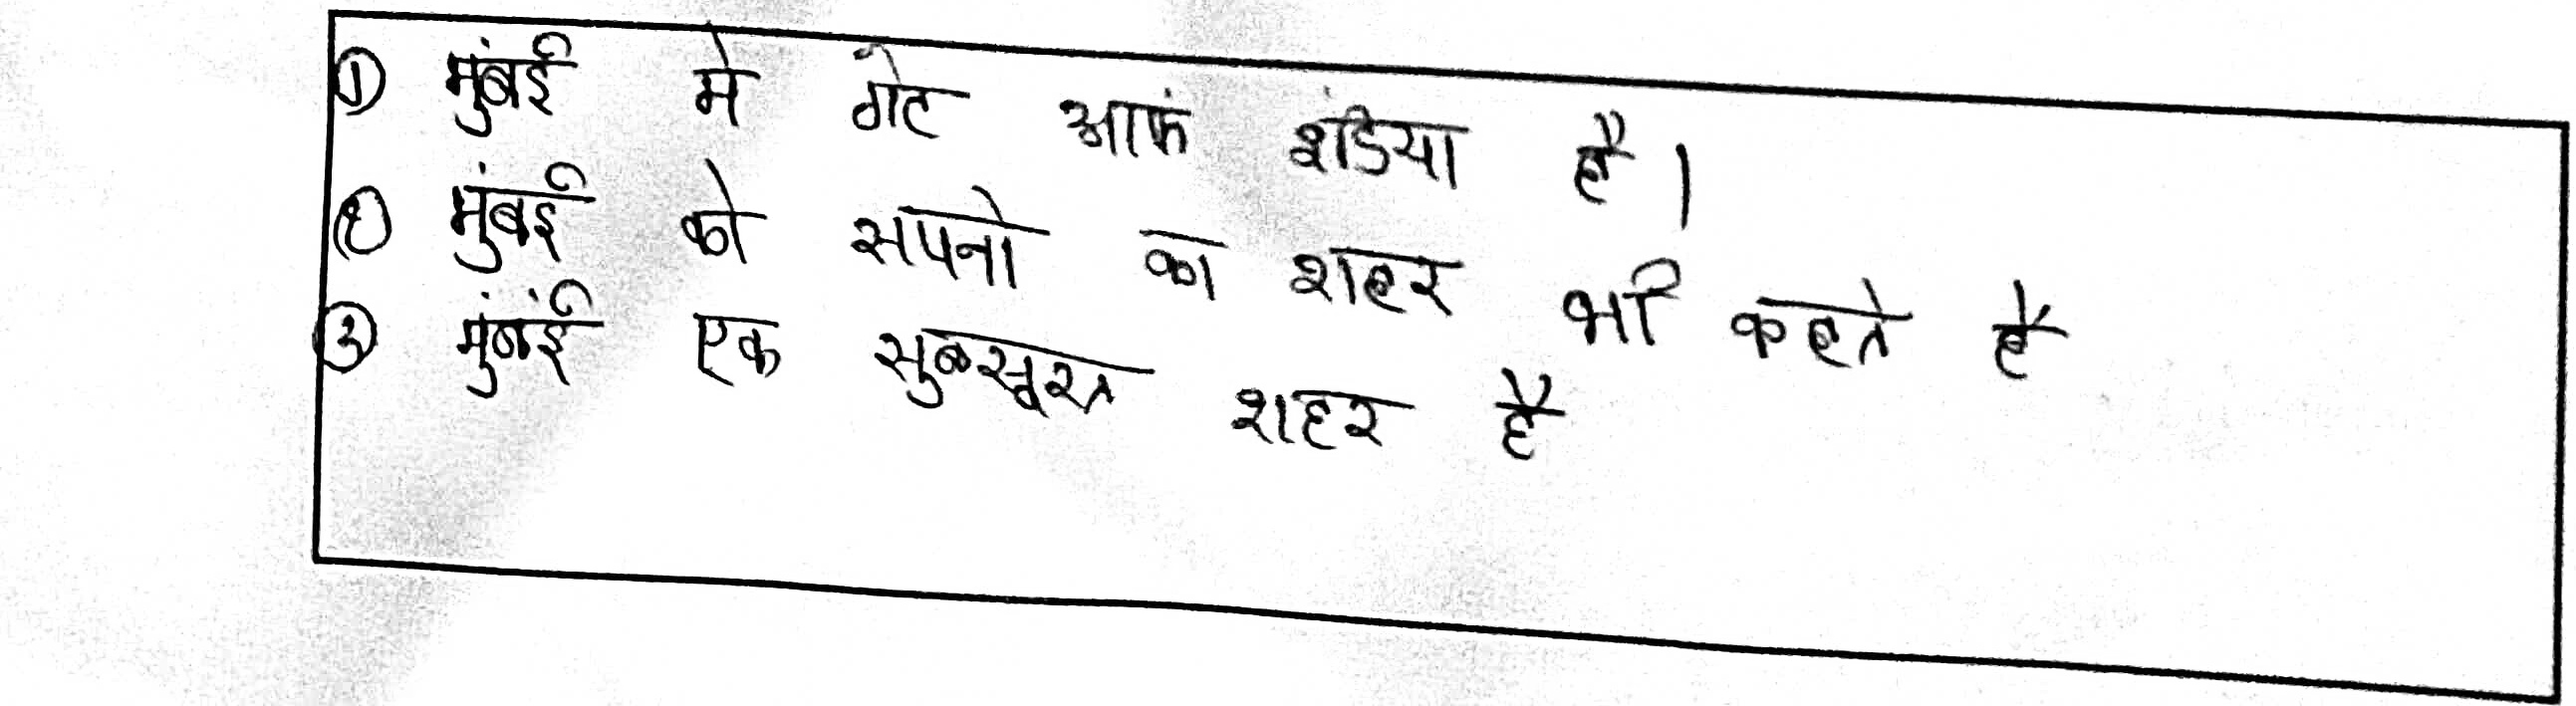 ① मुंबई मे गेट आफं इंडिया है।
② मुंबई को सपनो का शहर भी कहते है
③ मुंबंई एक सुबसूरत शहर है